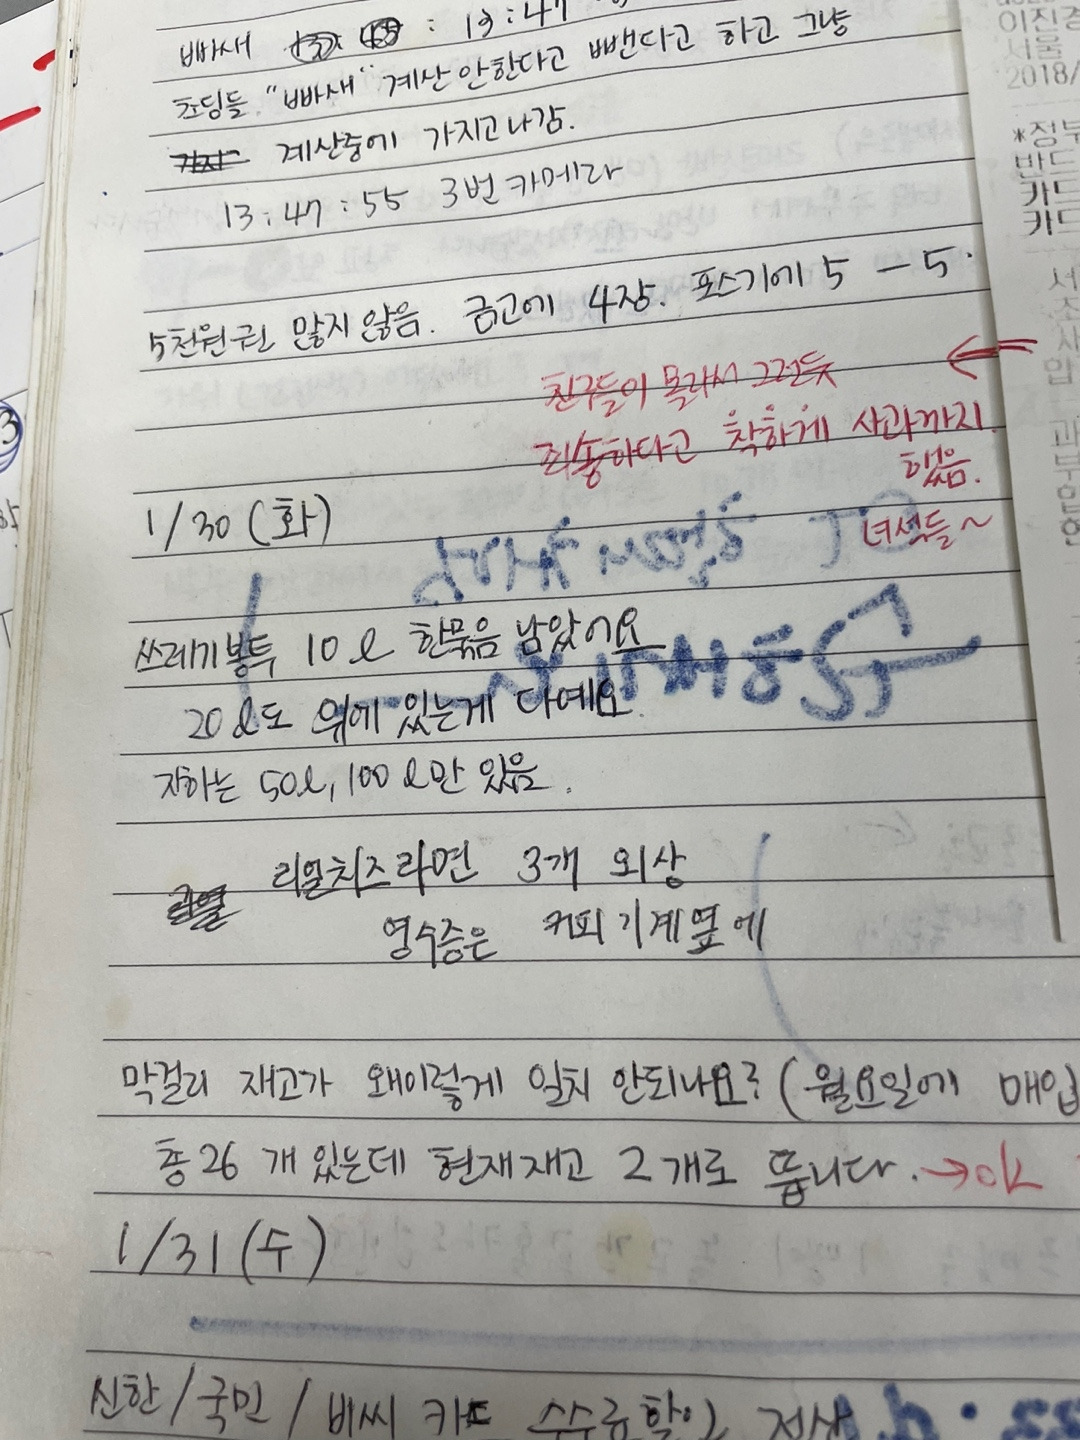 빠새 : 13:47
초딩들. "빠새" 계산 안한다고 뺀다고 하고 그냥
계산중에 가지고 나감.
13:47:55 3번 카메라
5천원권 많지 않음. 금고에 4장. 포스기에 5 - 5.
친구들이 몰라서 그런듯
죄송하다고 착하게 사과까지
했음.
녀석들~
1/30 (화)
쓰레기봉투 10ℓ 한묶음 남았어요
20ℓ도 위에 있는게 다예요.
지하는 50ℓ, 100ℓ만 있음.
리얼치즈라면 3개 외상
영수증은 커피기계옆에
막걸리 재고가 왜이렇게 일치 안되나요? (월요일에 매입
총 26개 있는데 현재재고 2개로 뜹니다. → ok
1/31 (수)
신한/국민/비씨 카드
이진경
서울
2018/
*정부
반드
카드
카드